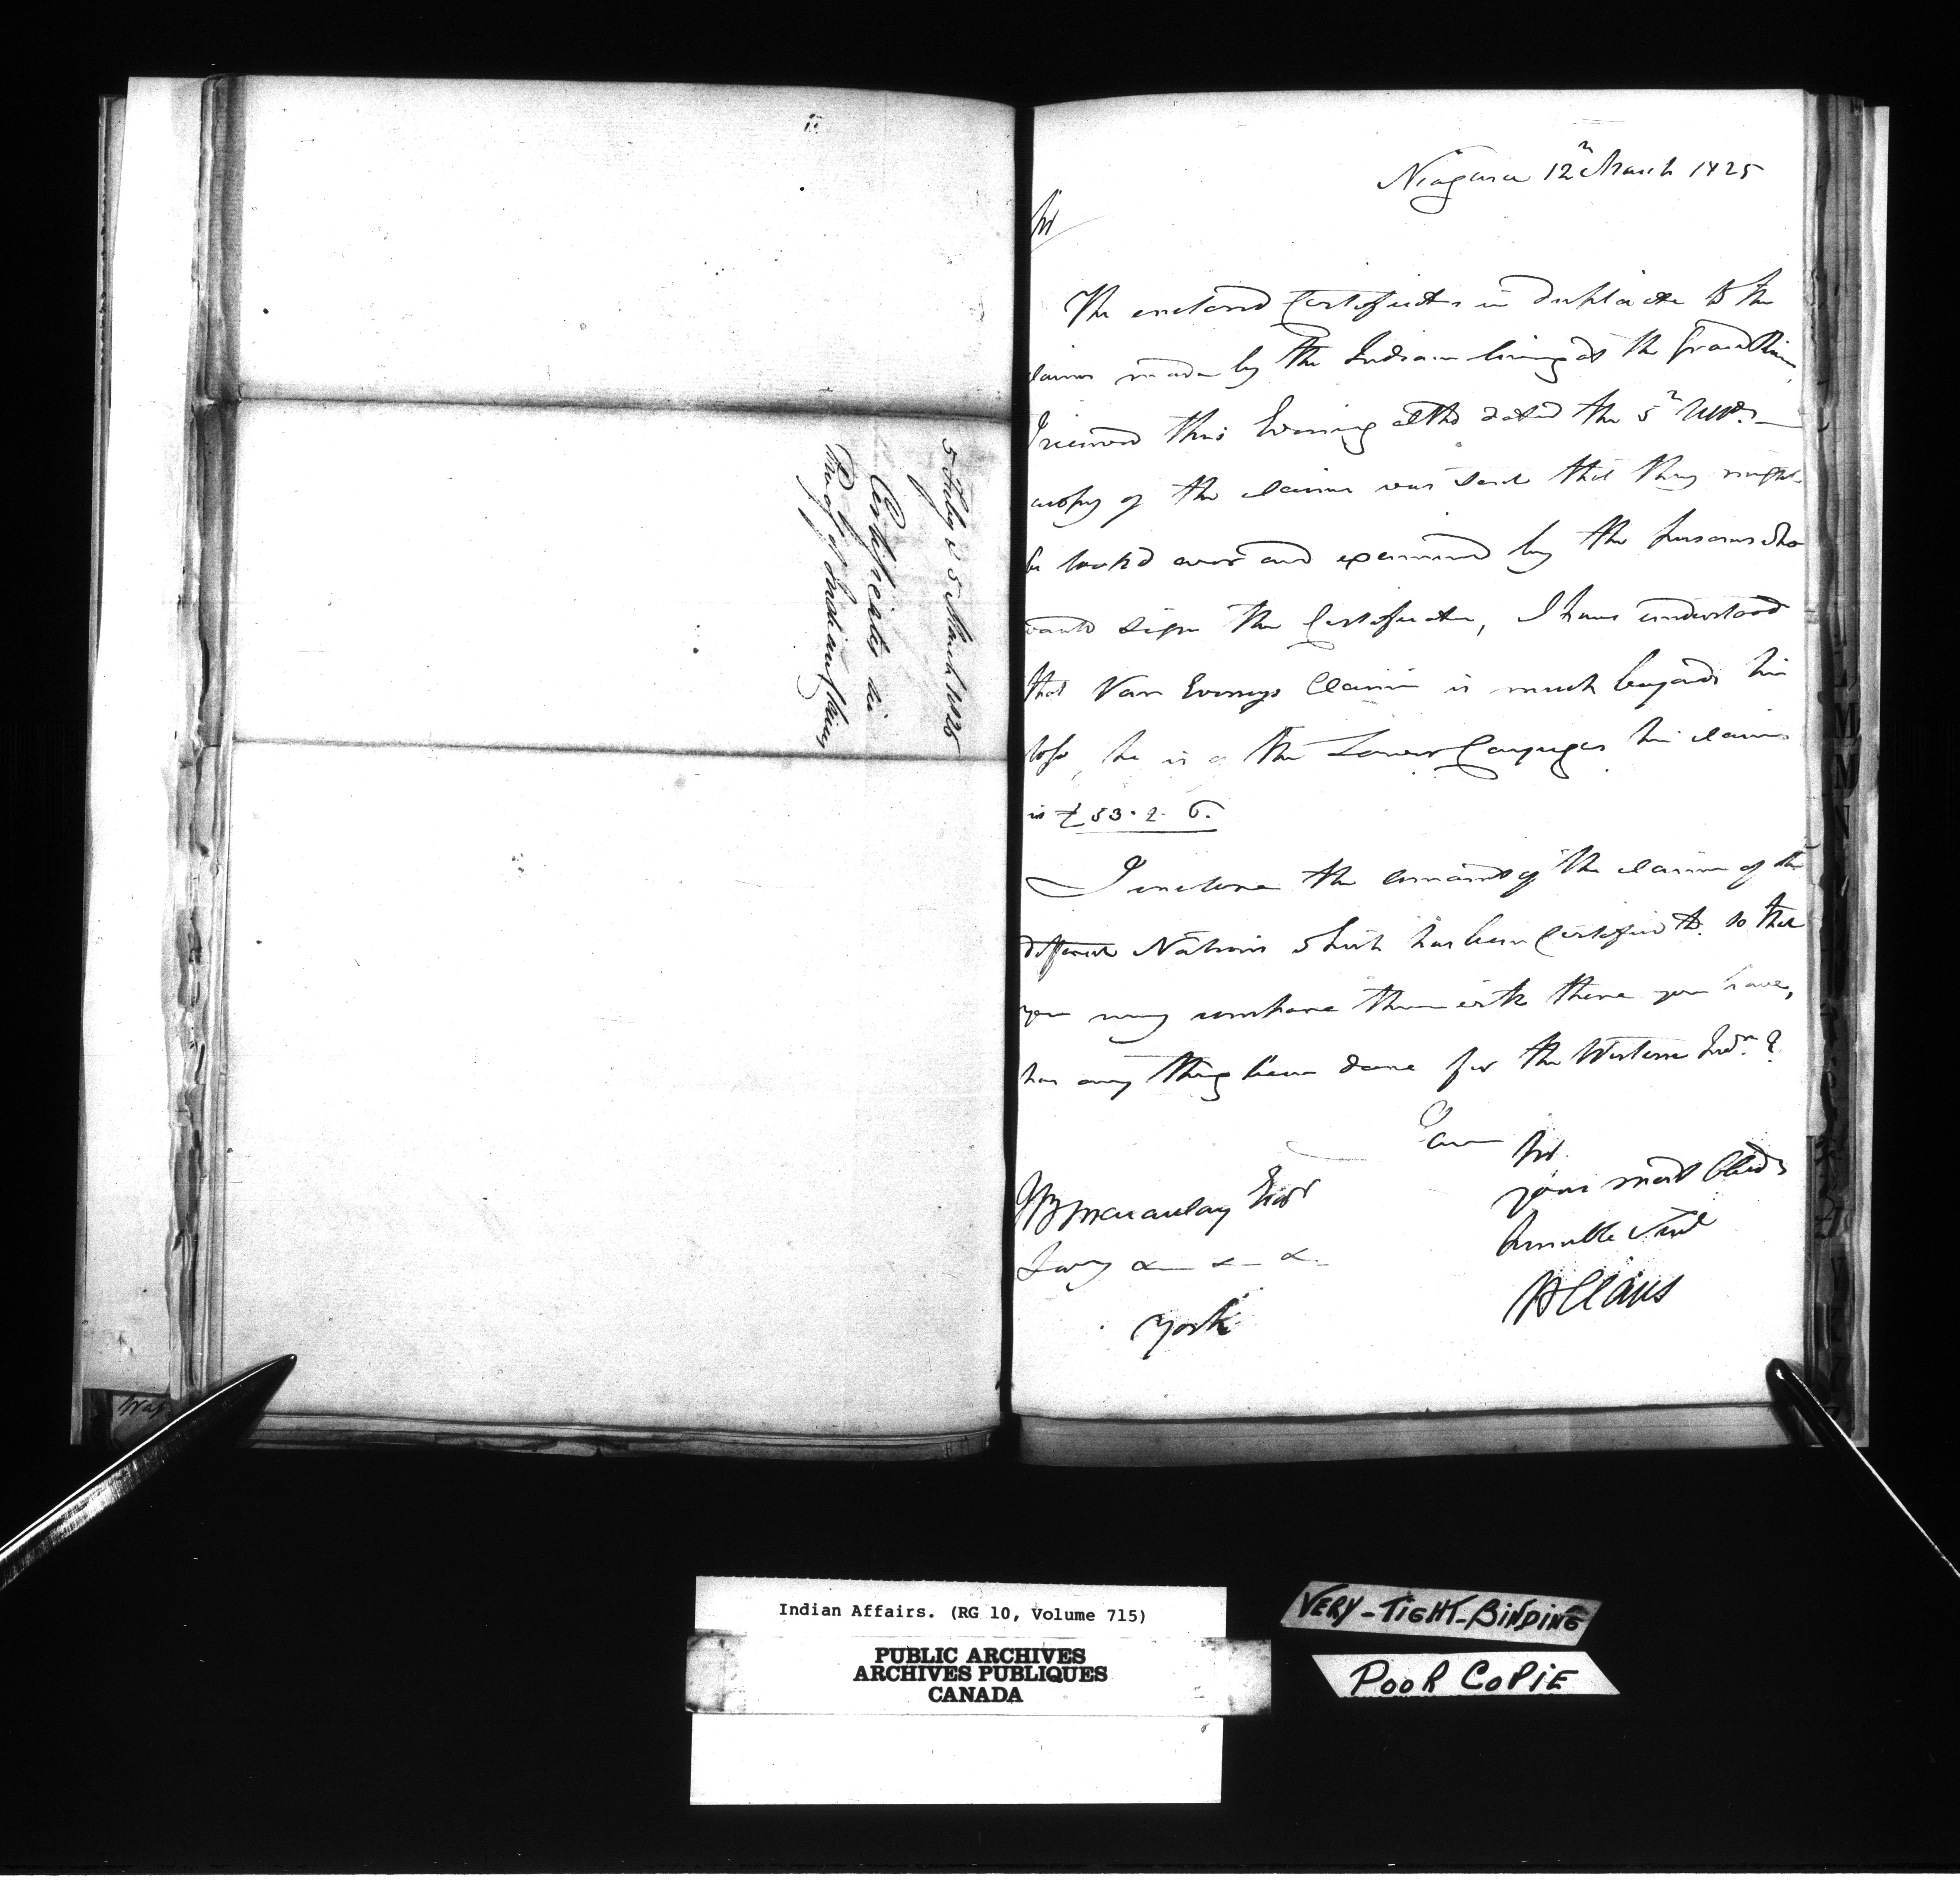 5 Feby & 5 March 1825
Certificates in
Proof of Indian
Niagara 12th March 1825
Sir
The enclosed Certificates in duplicate to the
claims made by the Indians living at the Grand River
I received this Evening dated the 5th
a copy of the claims was sent that they might
be look'd over and examined by the persons who
would sign the Certificates, I have understood
that Van Everys Claim is much beyond his
loss, he is of the Lower Cayugas his claim
is £53.2.6.
I enclose the amount of the claims of the
different Nations which has been Certified to. so that
you may compare them with those you have,
has any thing been done for the Western Inds. ?
I am Sir
your most Obedt
humble Servt
W Claus
J B Macaulay Esqr
&— &— &—
York
Indian Affairs. (RG 10, Volume 715)
PUBLIC ARCHIVES
ARCHIVES PUBLIQUES
CANADA
VERY-TIGHT-BINDING
POOR COPIE